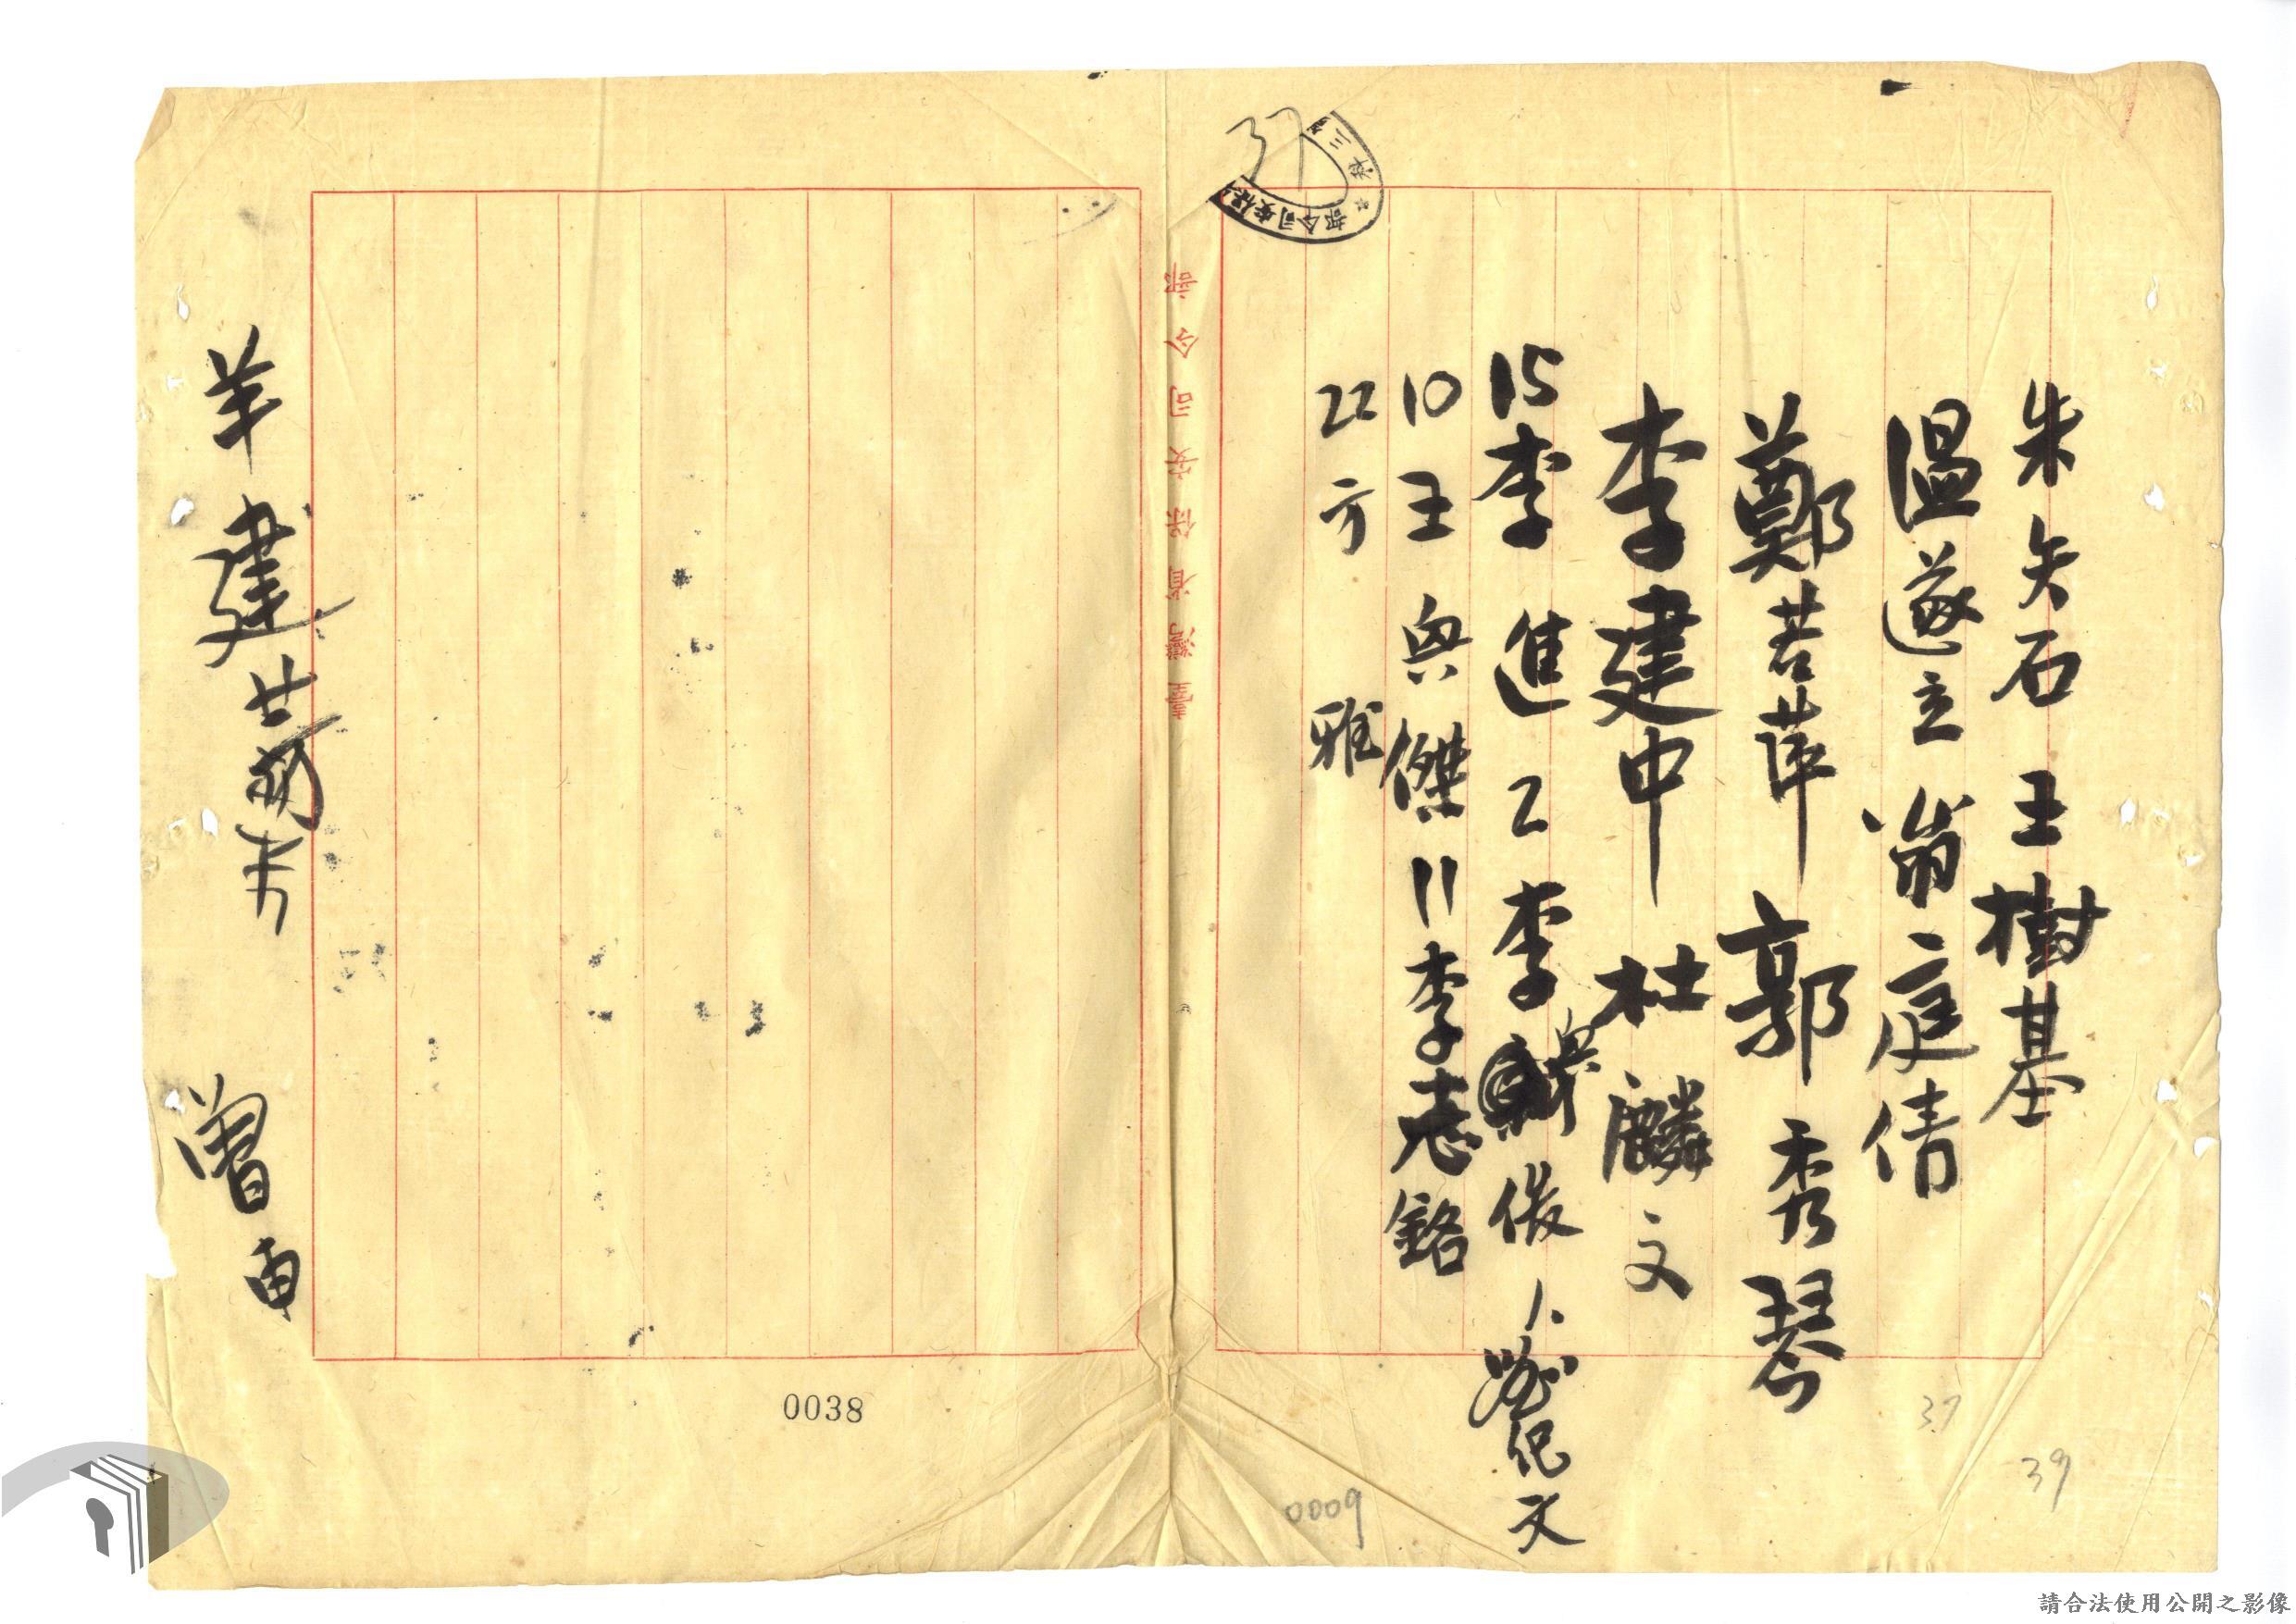 朱矢石 王樹基
溫遂立 翁庭倩
鄭若萍 郭秀琴
李建中 杜麟文
15李進 2李興俊 1.紀文
10王興傑 11李志銘
22方雅
羊建
曾
臺灣省保安司令部
保安司令部
37
0038
0009
37
39
請合法使用公開之影像